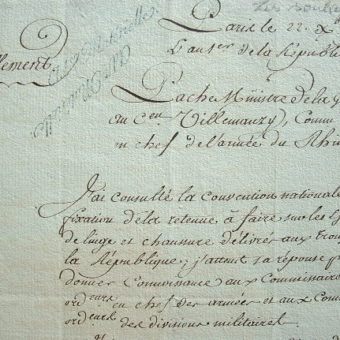 Paris le 22. X
L'an 1er de la République
llement
Pache Ministre de la g
au Cen Villemanzy, Comm
en chef de l'armée du Rhin
J'ai consulté la Convention nationale
fixation de la retenue à faire sur les
de linge et chaussure délivrés aux trou
la République; j'attends sa réponse p
donner Connoissance aux Commissaires
ordeurs en chef des armées et aux Comm
ordeurs des divisions militaires.